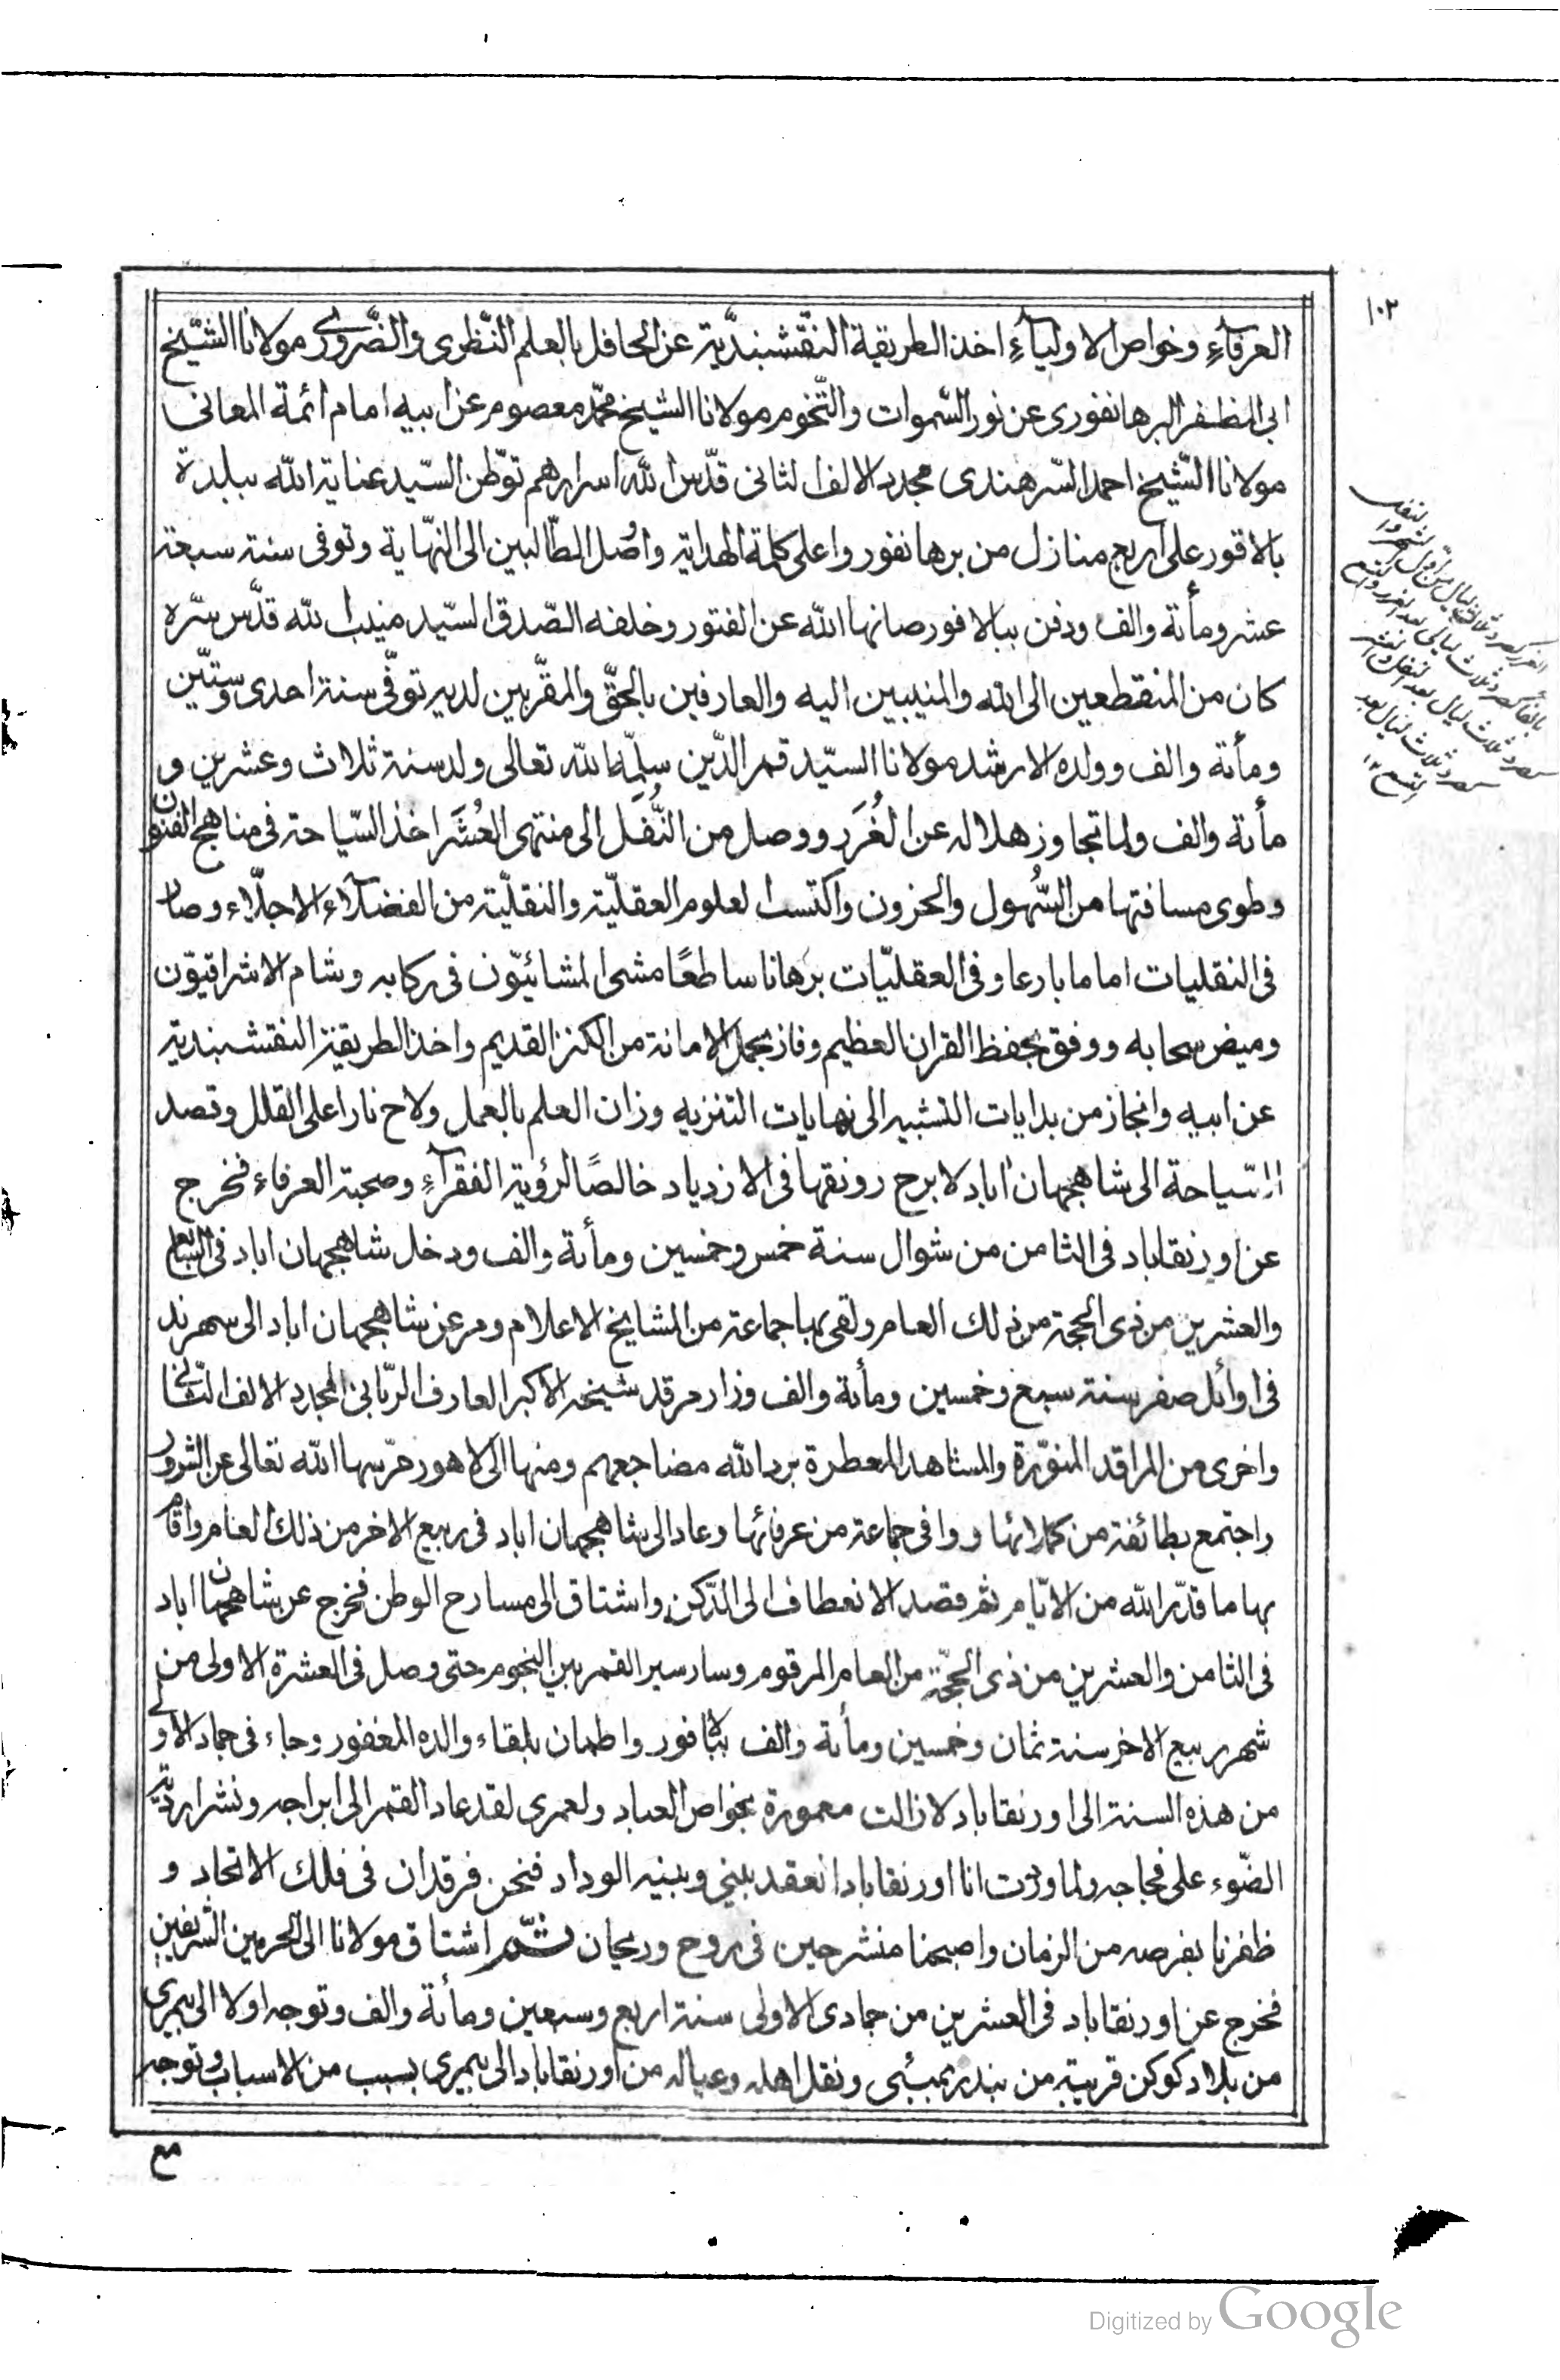 ١٠٢
العرفآءِ وخواص الاوليآءِ اخذ الطريقة النّقشبنديّة عن الحافل بالعلم النّظرى والضّرورى مولانا الشّيخ
ابى المظفر البرهانفورى عن نور السّموات والتّخوم مولانا الشيخ محمّد معصوم عن ابيه امام ائمة المعانى
مولانا الشّيخ احمد السّرهندى مجدد الالف الثانى قدّس الله اسرارهم توّطن السّيد عناية الله ببلدة
بالافور على اربع منازل من برهانفور واعلى كلمة الهداية واصُل الطّالبين الى النّهاية وتوفى سنة سبعة
عشر ومأتة والف ودفن ببالافور صانها الله عن الفتور وخلفه الصّدق السّيد منيب الله قدّس سّره
كان من المنقطعين الى الله والمنيبين اليه والعارفين بالحقّ والمقّربين لديه توفّى سنة احدى وستّين
ومأتة والف وولده الارشد مولانا السيّد قمر الدّين سلّمه الله تعالى ولد سنة ثلاث وعشرين و
مأتة والف ولما تجاوز هلاله عن الغُرَر ووصل من النُّفَل الى منتهى العُشَر اخذ السّياحة فى مناهج الفنون
وطوى مسافتها من السُّهول والحزون واكتسب العلوم العقليّة والنقليّة من الفضلآء الاجلّاء وصار
فى النقليات اماما بارعا وفى العقليّات برهانا ساطعًا مشى المشائيّون فى ركابه وشام الاشراقيوّن
وميض سحابه ووفق بحفظ القران العظيم وفاز بحمل الامانة من الكنز القديم واخذ الطريقة النقشبندية
عن ابيه وانجاز من بدايات التشبيه الى نهايات التنزيه وزان العلم بالعمل ولاح نارا على القلل وقصد
السّياحة الى شاهجهان اباد لا برح رونقها فى الازدياد خالصًا لرؤية الفقرآءِ وصحبة العرفاء فخرج
عن اورنقاباد فى الثامن من شوال سنة خمس وخمسين ومأتة والف ودخل شاهجهان اباد فى السابع
والعشرين من ذى الحجة من ذلك العام ولقى بها جماعة من المشايخ الاعلام ومر عن شاهجهان اباد الى سهرند
فى اوائل صفر سنة سبع وخمسين ومأتة والف وزار مرقد شيخه الاكبر العارف الرّبانى المجدد الالف الثانى
واخرى من المراقد المنوّرة والمشاهد المعطرة برد الله مضاجعهم ومنها الى لاهور حرّسها الله تعالى عن الشرور
واجتمع بطائفة من كبرائها ووافى جماعة من عرفائها وعاد الى شاهجهان اباد فى ربيع الاخر من ذلك العام واقام
بها ما قدّر الله من الايّام ثم قصد الانعطاف الى الدّكن واشتاق الى مسارح الوطن فخرج عن شاهجهان اباد
فى الثامن والعشرين من ذى الحجّة من العام المرقوم وسار سير القمر بين النجوم حتى وصل فى العشرة الاولى من
شهر ربيع الاخر سنة ثمان وخمسين ومأتة والف ببالافور واطمان بلقاء والده المغفور وجاء فى جمادى الاولى
من هذه السنة الى اورنقاباد لا زالت معمورة بخواص العباد ولعمرى لقد عاد القمر الى ابراجه ونشر اردية
الضّوء على فجاجه ولما وردت انا اورنقاباد انعقد بينى وبينه الوداد فنحن فرقدان فى فلك الاتحاد و
ظفرنا بفرصه من الزمان واصبحنا منشرحين فى روح وريحان ثـّم اشتاق مولانا الى الحرمين الشريفين
فخرج عن اورنقاباد فى العشرين من جمادى الاولى سنة اربع وسبعين ومأتة والف وتوجه اولا الى بيمرى
من بلاد كوكن قريبة من بندر بمبئى ونقل اهله وعياله من اورنقاباد الى بيمرى بسبب من الاسباب وتوجه
مع
Digitized by Google